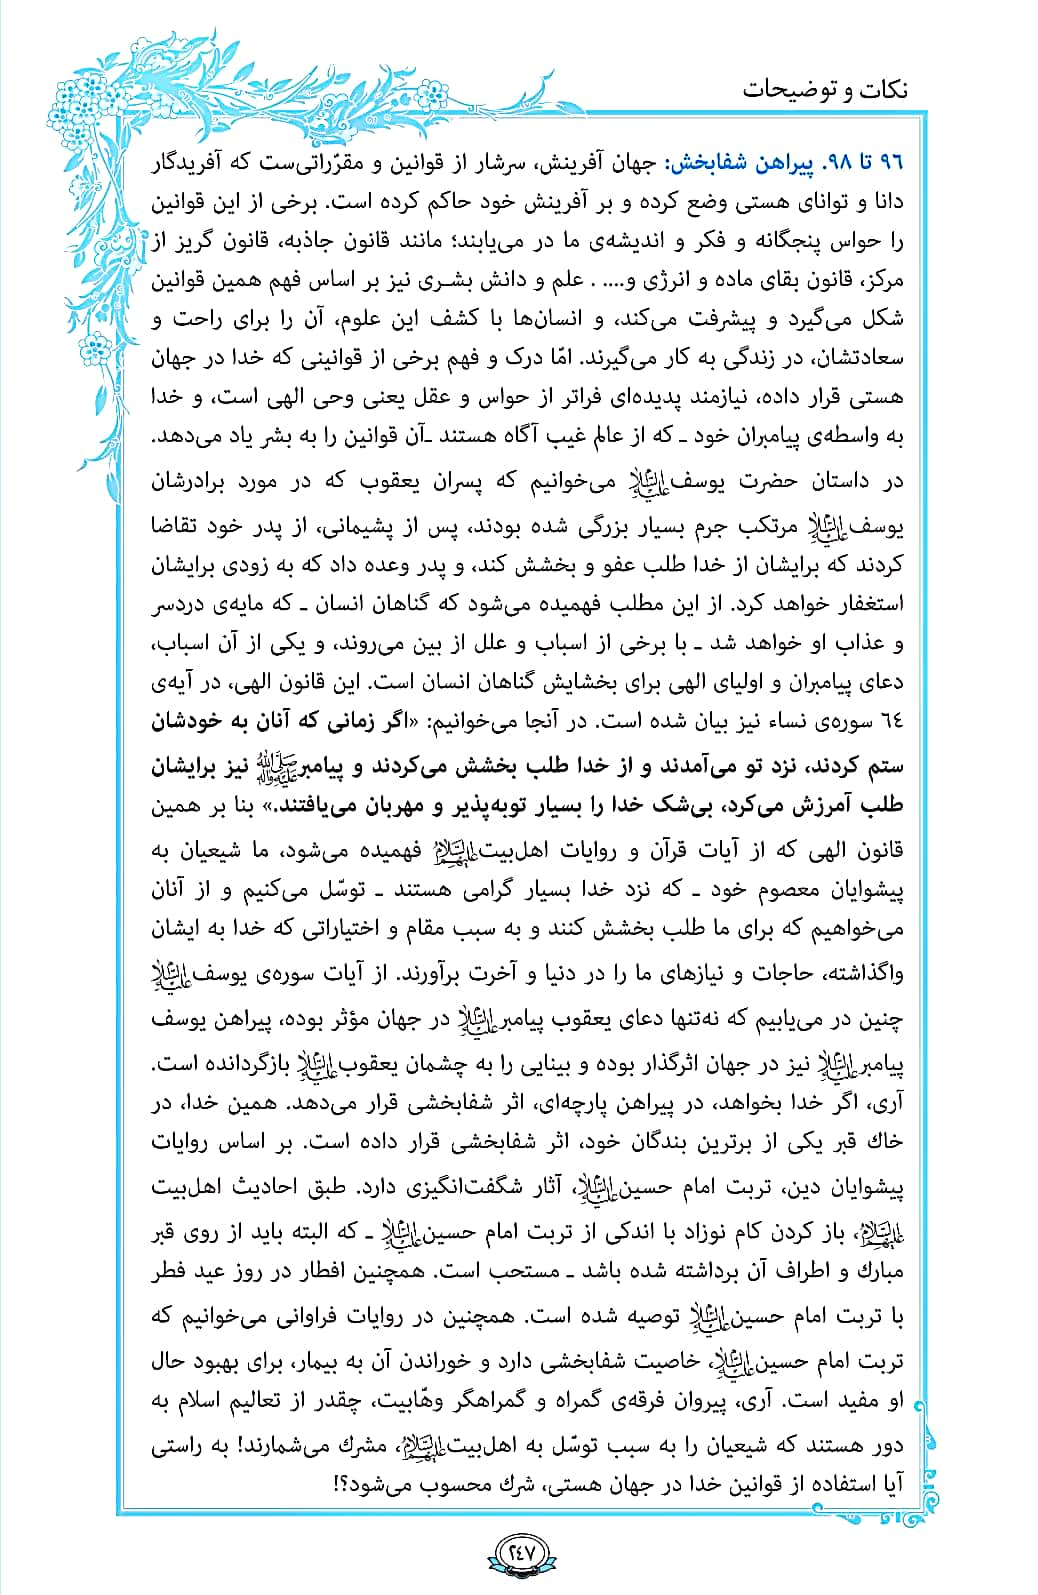 نکات و توضیحات
۹۶ تا ۹۸. پیراهن شفابخش: جهان آفرینش، سرشار از قوانین و مقرّراتی‌ست که آفریدگار
دانا و توانای هستی وضع کرده و بر آفرینش خود حاکم کرده است. برخی از این قوانین
را حواس پنجگانه و فکر و اندیشه‌ی ما در می‌یابند؛ مانند قانون جاذبه، قانون گریز از
مرکز، قانون بقای ماده و انرژی و.... . علم و دانش بشری نیز بر اساس فهم همین قوانین
شکل می‌گیرد و پیشرفت می‌کند، و انسان‌ها با کشف این علوم، آن را برای راحت و
سعادتشان، در زندگی به کار می‌گیرند. امّا درک و فهم برخی از قوانینی که خدا در جهان
هستی قرار داده، نیازمند پدیده‌ای فراتر از حواس و عقل یعنی وحی الهی است، و خدا
به واسطه‌ی پیامبران خود ـ که از عالم غیب آگاه هستند ـآن قوانین را به بشر یاد می‌دهد.
در داستان حضرت یوسف علیه‌السلام می‌خوانیم که پسران یعقوب که در مورد برادرشان
یوسف علیه‌السلام مرتکب جرم بسیار بزرگی شده بودند، پس از پشیمانی، از پدر خود تقاضا
کردند که برایشان از خدا طلب عفو و بخشش کند، و پدر وعده داد که به زودی برایشان
استغفار خواهد کرد. از این مطلب فهمیده می‌شود که گناهان انسان ـ که مایه‌ی دردسر
و عذاب او خواهد شد ـ با برخی از اسباب و علل از بین می‌روند، و یکی از آن اسباب،
دعای پیامبران و اولیای الهی برای بخشایش گناهان انسان است. این قانون الهی، در آیه‌ی
۶۴ سوره‌ی نساء نیز بیان شده است. در آنجا می‌خوانیم: «اگر زمانی که آنان به خودشان
ستم کردند، نزد تو می‌آمدند و از خدا طلب بخشش می‌کردند و پیامبر صلی‌الله‌علیه‌وآله نیز برایشان
طلب آمرزش می‌کرد، بی‌شک خدا را بسیار توبه‌پذیر و مهربان می‌یافتند.» بنا بر همین
قانون الهی که از آیات قرآن و روایات اهل‌بیت علیهم‌السلام فهمیده می‌شود، ما شیعیان به
پیشوایان معصوم خود ـ که نزد خدا بسیار گرامی هستند ـ توسّل می‌کنیم و از آنان
می‌خواهیم که برای ما طلب بخشش کنند و به سبب مقام و اختیاراتی که خدا به ایشان
واگذاشته، حاجات و نیازهای ما را در دنیا و آخرت برآورند. از آیات سوره‌ی یوسف علیه‌السلام
چنین در می‌یابیم که نه‌تنها دعای یعقوب پیامبر علیه‌السلام در جهان مؤثر بوده، پیراهن یوسف
پیامبر علیه‌السلام نیز در جهان اثرگذار بوده و بینایی را به چشمان یعقوب علیه‌السلام بازگردانده است.
آری، اگر خدا بخواهد، در پیراهن پارچه‌ای، اثر شفابخشی قرار می‌دهد. همین خدا، در
خاك قبر یکی از برترین بندگان خود، اثر شفابخشی قرار داده است. بر اساس روایات
پیشوایان دین، تربت امام حسین علیه‌السلام، آثار شگفت‌انگیزی دارد. طبق احادیث اهل‌بیت
علیهم‌السلام، باز کردن کام نوزاد با اندکی از تربت امام حسین علیه‌السلام ـ که البته باید از روی قبر
مبارك و اطراف آن برداشته شده باشد ـ مستحب است. همچنین افطار در روز عید فطر
با تربت امام حسین علیه‌السلام توصیه شده است. همچنین در روایات فراوانی می‌خوانیم که
تربت امام حسین علیه‌السلام، خاصیت شفابخشی دارد و خوراندن آن به بیمار، برای بهبود حال
او مفید است. آری، پیروان فرقه‌ی گمراه و گمراهگر وهّابیت، چقدر از تعالیم اسلام به
دور هستند که شیعیان را به سبب توسّل به اهل‌بیت علیهم‌السلام، مشرك می‌شمارند! به راستی
آیا استفاده از قوانین خدا در جهان هستی، شرك محسوب می‌شود؟!
۲۴۷